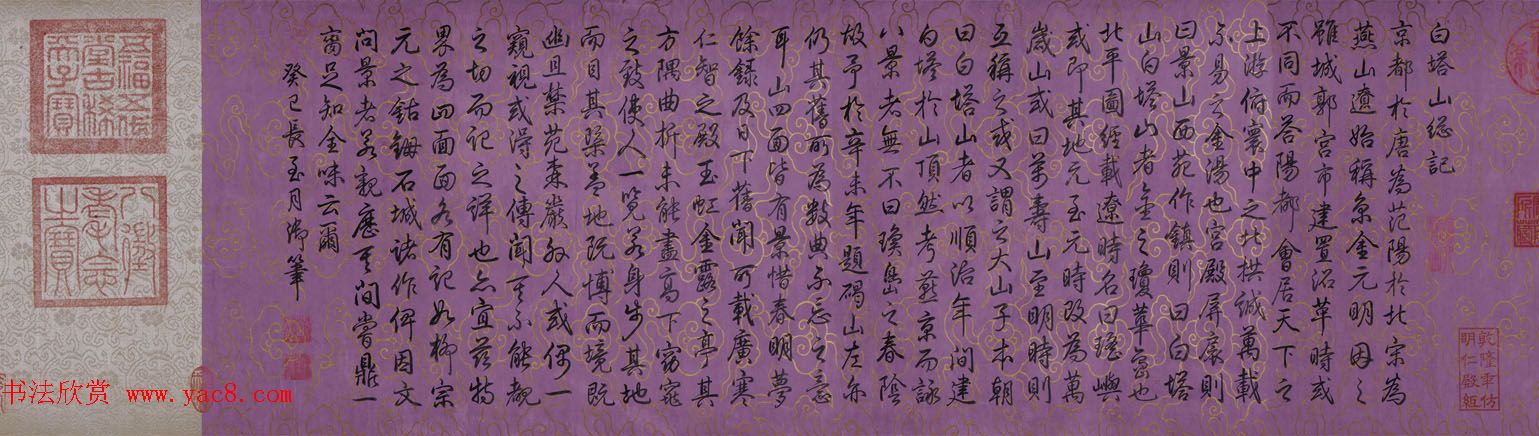 白塔山总记
京都於唐為范陽於北宋為
燕山遼始稱京金元明因之
雖城郭宮市建置沿革時或
不同而荅陽都會居天下之
上游俯寰中之北拱誠萬載
不易之金湯也宮殿屏扆則
曰景山西苑作鎮則曰白塔
山白塔山者金之瓊華島也
北平圖經載遼時名曰瑤嶼
或即其地元至元時改為萬
歲山或曰萬壽山至明時則
互稱之或又謂之大山子本朝
曰白塔山者以順治年間建
白塔於山頂然考燕京而詠
八景者無不曰瓊島之春陰
故予於辛未年題碣山左亦
仍其舊所為數典不忘之意
耳山四面皆有景惜春明夢
餘錄及日下舊聞所載廣寒
仁智之殿玉虹金露之亭其
方隅曲折未能盡高下窈窕
之致使人一覽若身步其地
而目其槩蓋地既博而境既
幽且禁苑森嚴外人或偶一
窺視或得之傳聞其不能覩
之切而記之詳也亦宜茲特
界為四面面各有記如柳宗
元之鈷鉧石城諸作俾因文
問景者若親歷其間嘗鼎一
臠足知全味云爾
癸巳長至月御筆
乾隆年仿
明仁殿紙
五福五代
堂古稀
天子寶
八徵
耄念
之寶
书法欣赏 www.yac8.com